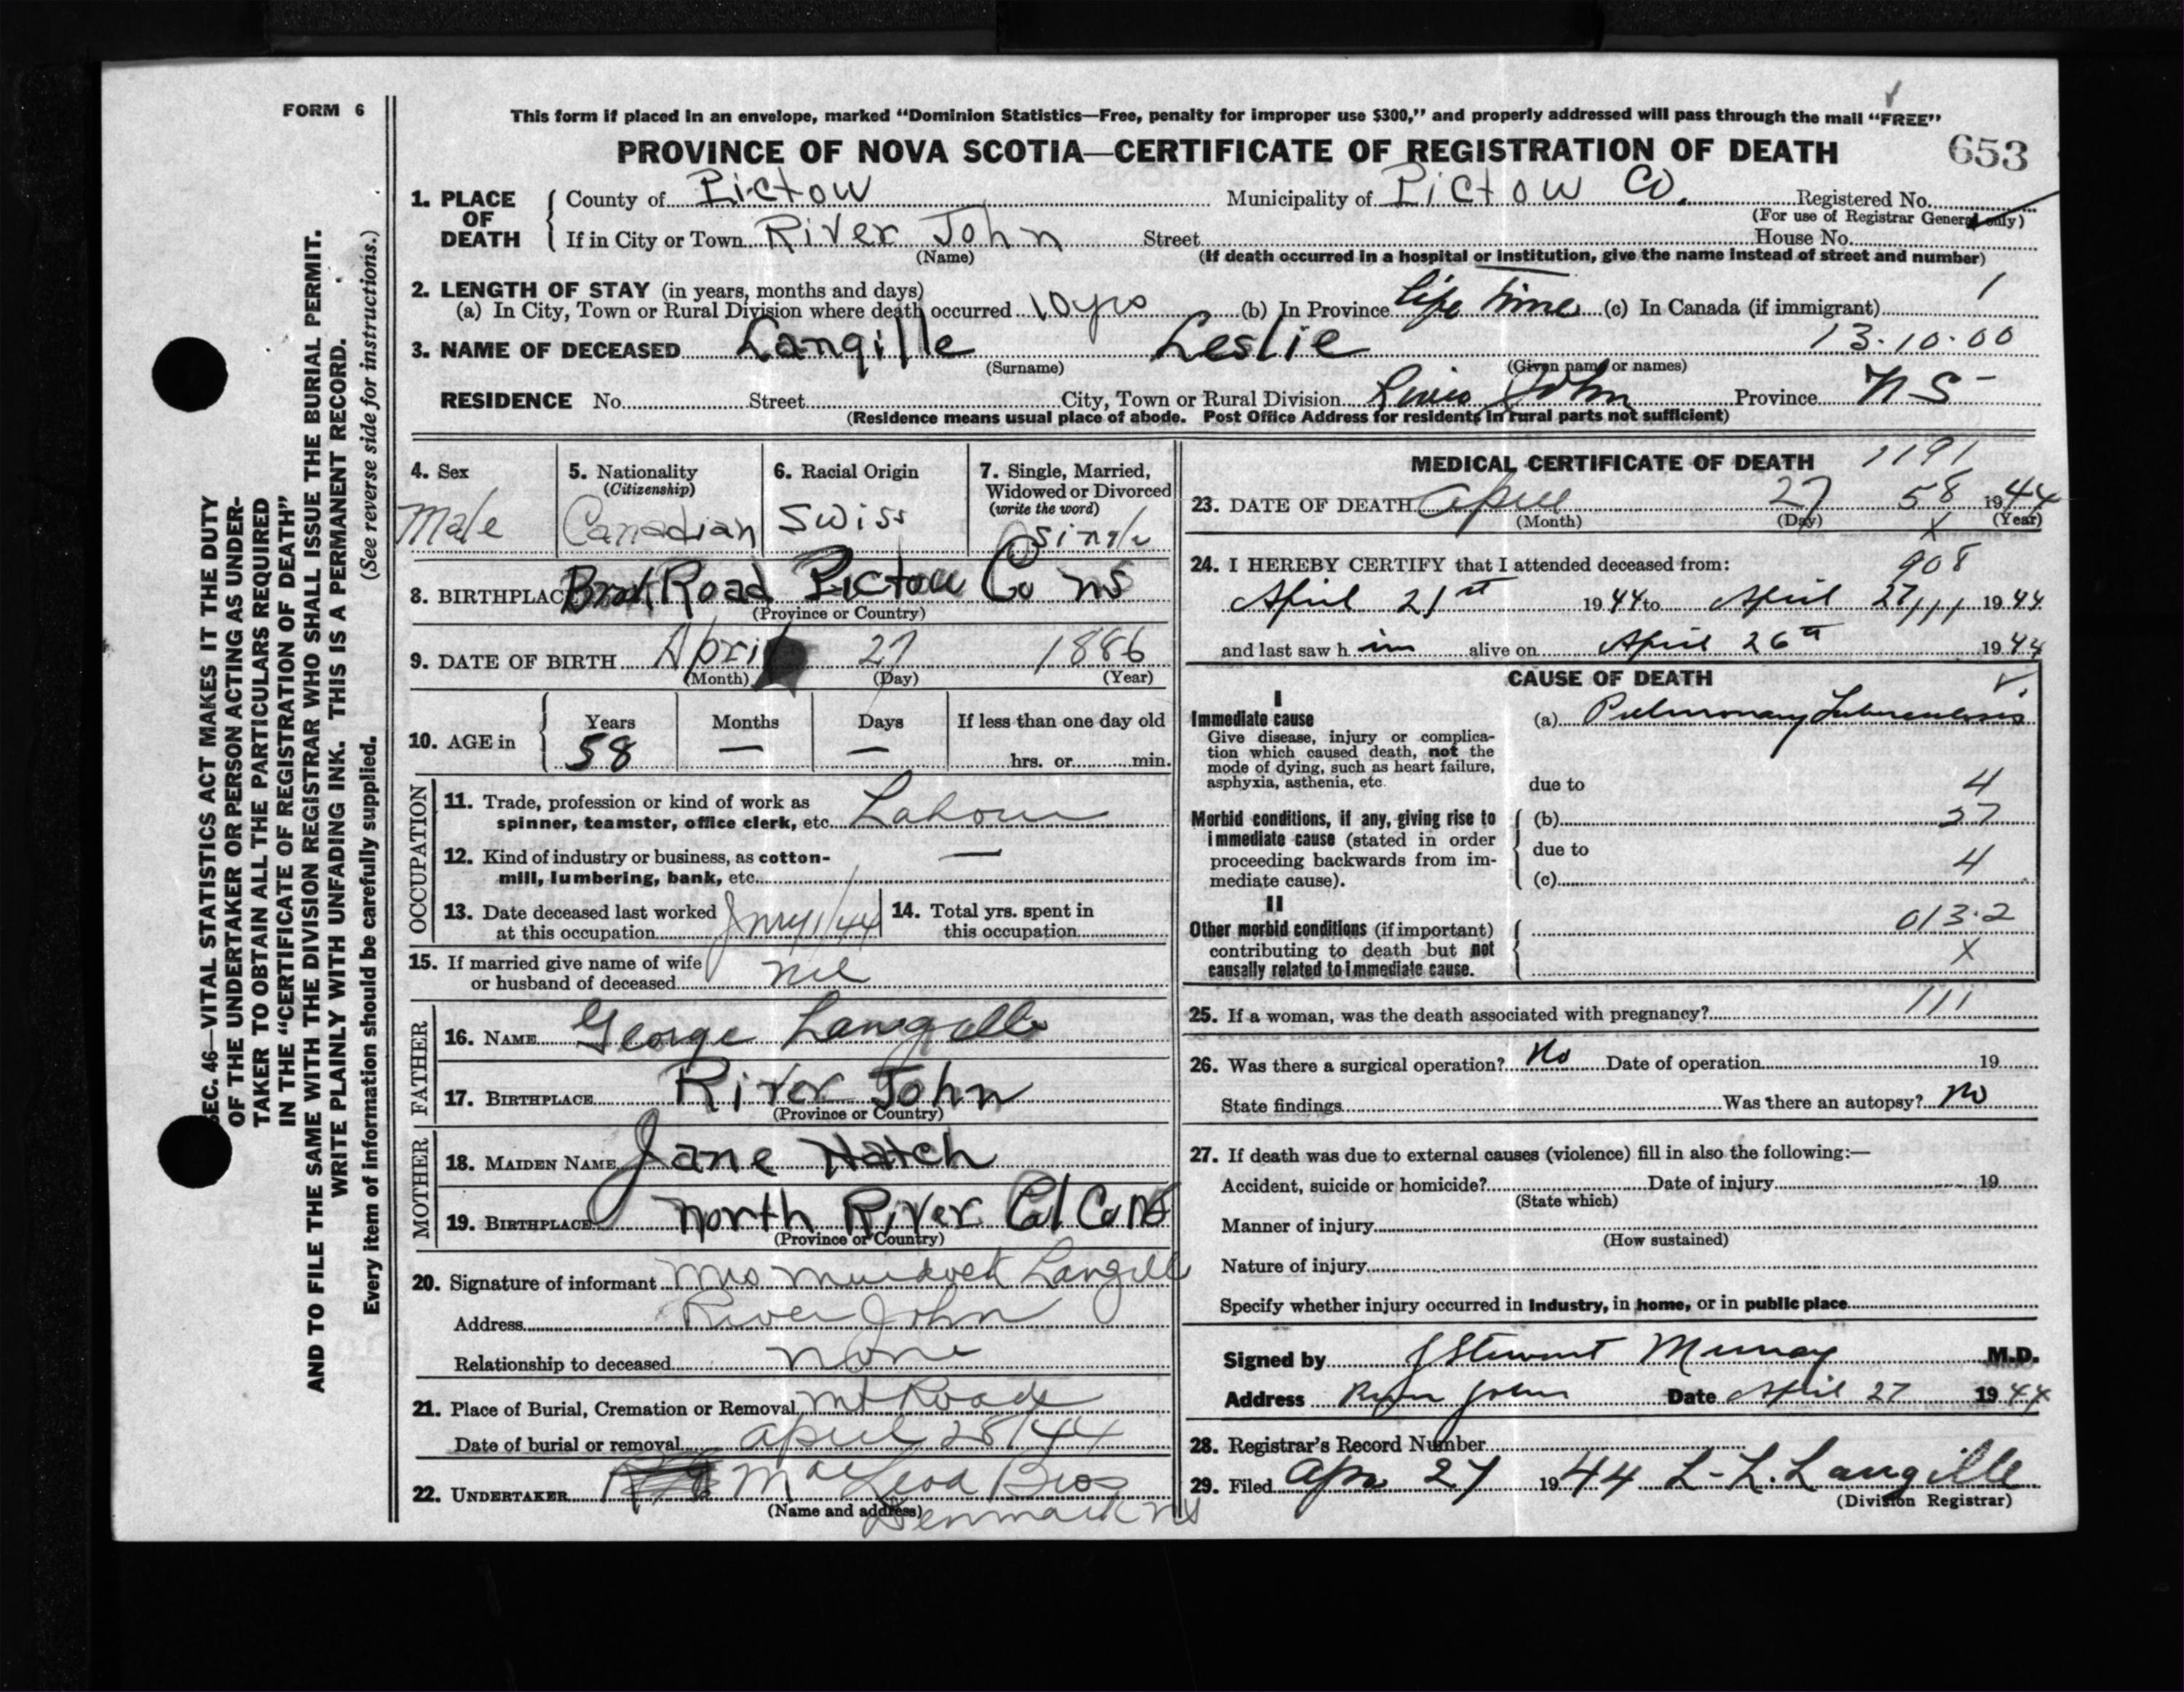 FORM 6
SEC. 46—VITAL STATISTICS ACT MAKES IT THE DUTY
OF THE UNDERTAKER OR PERSON ACTING AS UNDER-
TAKER TO OBTAIN ALL THE PARTICULARS REQUIRED
IN THE "CERTIFICATE OF REGISTRATION OF DEATH"
AND TO FILE THE SAME WITH THE DIVISION REGISTRAR WHO SHALL ISSUE THE BURIAL PERMIT.
WRITE PLAINLY WITH UNFADING INK. THIS IS A PERMANENT RECORD.
Every item of information should be carefully supplied. (See reverse side for instructions.)
This form if placed in an envelope, marked "Dominion Statistics—Free, penalty for improper use $300," and properly addressed will pass through the mail "FREE"
PROVINCE OF NOVA SCOTIA—CERTIFICATE OF REGISTRATION OF DEATH 653
1. PLACE OF DEATH County of Pictow Municipality of Pictow Co. Registered No.
(For use of Registrar General only)
If in City or Town River John Street House No.
(Name) (If death occurred in a hospital or institution, give the name instead of street and number)
2. LENGTH OF STAY (in years, months and days)
(a) In City, Town or Rural Division where death occurred 10 yrs (b) In Province life time (c) In Canada (if immigrant) 1
3. NAME OF DECEASED Langille Leslie 13.10.00
(Surname) (Given name or names)
RESIDENCE No. Street City, Town or Rural Division River John Province N S
(Residence means usual place of abode. Post Office Address for residents in rural parts not sufficient)
4. Sex Male
5. Nationality (Citizenship) Canadian
6. Racial Origin Swiss
7. Single, Married, Widowed or Divorced (write the word) Single
8. BIRTHPLACE Road Pictou Co NS
(Province or Country)
9. DATE OF BIRTH April 27 1886
(Month) (Day) (Year)
10. AGE in Years 58 Months — Days — If less than one day old
hrs. or min.
OCCUPATION
11. Trade, profession or kind of work as
spinner, teamster, office clerk, etc. Labour
12. Kind of industry or business, as cotton-
mill, lumbering, bank, etc. —
13. Date deceased last worked
at this occupation 1/44
14. Total yrs. spent in
this occupation
15. If married give name of wife
or husband of deceased nil
FATHER
16. NAME George Langille
17. BIRTHPLACE River John
(Province or Country)
MOTHER
18. MAIDEN NAME Jane Hatch
19. BIRTHPLACE North River Col Co NS
(Province or Country)
20. Signature of informant Mrs Murdoch Langille
Address River John
Relationship to deceased none
21. Place of Burial, Cremation or Removal Mt Road
Date of burial or removal April 28/44
22. UNDERTAKER MacLeod Bros
(Name and address) Denmark NS
MEDICAL CERTIFICATE OF DEATH 1191
23. DATE OF DEATH April 27 58 1944
(Month) (Day) X (Year)
24. I HEREBY CERTIFY that I attended deceased from: 908
April 21st 1944 to April 27 111 1944
and last saw h im alive on April 26th 1944
CAUSE OF DEATH
I
Immediate cause
Give disease, injury or complica-
tion which caused death, not the
mode of dying, such as heart failure,
asphyxia, asthenia, etc.
(a) Pulmonary Tuberculosis
due to 4
Morbid conditions, if any, giving rise to
immediate cause (stated in order
proceeding backwards from im-
mediate cause).
(b) 37
due to 4
(c)
II
Other morbid conditions (if important)
contributing to death but not
causally related to immediate cause.
013.2
X
25. If a woman, was the death associated with pregnancy? 111
26. Was there a surgical operation? No Date of operation 19
State findings Was there an autopsy? No
27. If death was due to external causes (violence) fill in also the following:—
Accident, suicide or homicide? Date of injury 19
(State which)
Manner of injury
(How sustained)
Nature of injury
Specify whether injury occurred in industry, in home, or in public place
Signed by J Stewart Murray M.D.
Address River John Date April 27 1944
28. Registrar's Record Number
29. Filed Apr 27 1944 L. L. Langille
(Division Registrar)